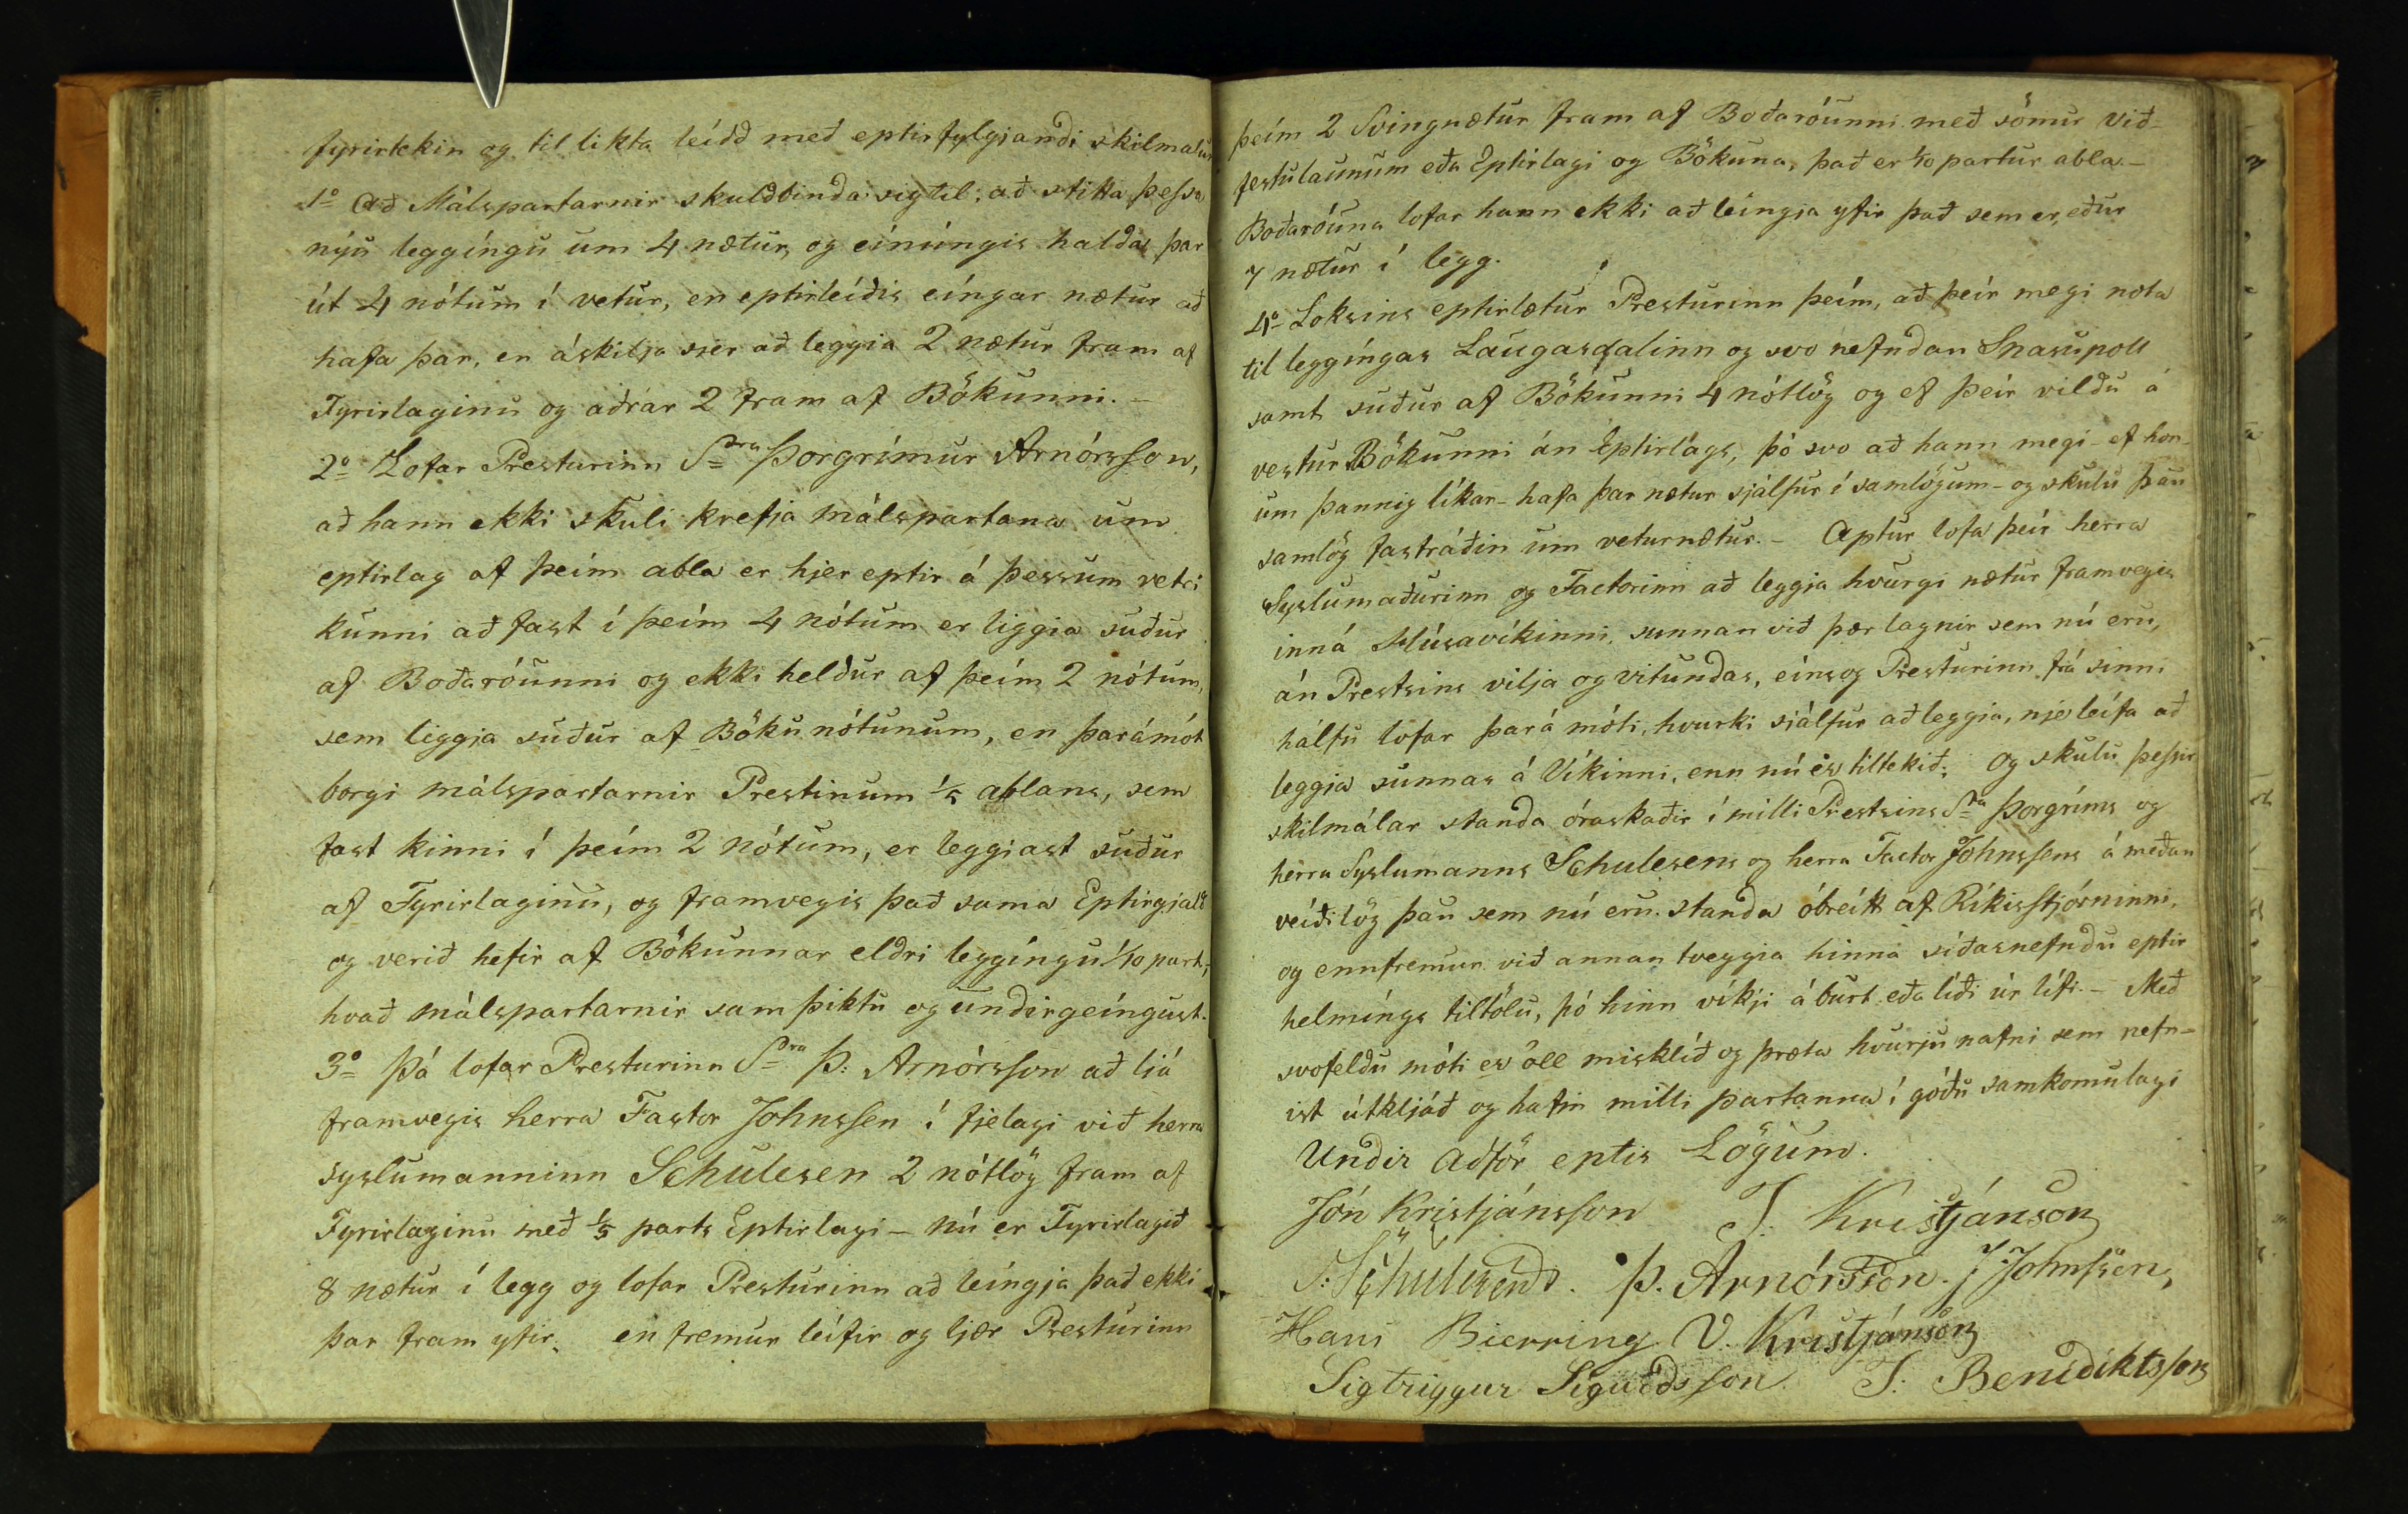 fyrirtekin og til likta leídd með eptirfylgjandi skilmalum
1o Að Málspartarnir skuldbinda sig til, að stitta þessa
nýu leggíngu um 4 nætur, og eínúngis halda þar
út 4 nótum í vetur, en eptirleíðis eíngar nætur að
hafa þar, en áskilja sjer að leggia 2 nætur fram af
Fyrirlaginu og aðrar 2 fram af Bökunni. –
2o Lofar Presturinn Sra Þorgrímur Arnórsson,
að hann ekki skuli krefja málspartana um
eptirlag af þeím abla er hjer eptir á þessum vetri
kunni að fast í þeím 4 nótum er liggia suður
af Boðaróunni og ekki heldur af þeím 2 nótum,
sem liggja suður af Bökunótunum, en þarámót
borgi málspartarnir Prestinum 1/5 ablans, sem
fast kinni í þeím 2 nótum, er leggiast suður
af Fyrirlaginu, og framvegis það sama Eptirgjald
og verið hefir af Bökunnar eldri leggíngu 1/10 part;
hvað málspartarnir samþiktu og undirgeíngust.
3o Þá lofar Presturinn Sra Þ: Arnórsson að ljá
framvegis herra Factor Johnssen í fjelagi við herra
syslumanninn Schulesen 2 nótlög fram af
Fyrirlaginu með 1/5 parts Eptirlagi – nú er Fyrirlagið
8 nætur í legg og lofar Presturinn að leíngja það ekki
þar fram yfir. en fremur leífir og ljær Presturinn
þeím 2 Svingnætur fram af Boðaróunni með sömu við-
festulaunum eða Eptirlagi og Bökuna, það er 1/10 partur abla. –
Boðaróuna lofar hann ekki að leingja yfir það sem er, eður
7 nætur í legg.
4o Loksins eptirlætur Presturinn þeím, að þeír megi nota
til leggíngar Laugardalinn og svo nefndan Snasupoll
samt suður af Bökunni 4 nótlög og ef þeír vildu á
vestur Bökunni án Eptirlags, þó svo að hann megi – ef hon-
um þannig líkar – hafa þar nætur sjálfur í samlögum – og skulu þau
samlög fastráðin um veturnætur. – Aptur lofa þeír herra
Syslumaðurinn og Factorinn að leggja hvurgi nætur framvegis
inná Húsavíkinni, sunnan við þær lagnir sem nú eru,
án Prestsins vilja og vitundar, eíns og Presturinn frá sinni
hálfu lofar þará móti, hvurki sjálfur að leggja, nje leífa að
leggja sunnar á Víkinni, enn nú er tiltekið; og skulu þessir
skilmálar standa óraskaðir í milli Prestsins Sra Þorgríms og
herra Syslumanns Schulesens og herra Factor Johnssens á meðan
veíðilög þau sem nú eru standa óbreítt af Ríkisstjórninni,
og ennfremur við annan tveggia hinna síðarnefndu eptir
helmíngs tiltölu, þó hinn víkji á burt eða líði úr lífi. – Með
svofeldu móti er öll misklíð og þræta hvurju nafni sem nefn-
ist útkljáð og hafin milli partanna í góðu samkomulagi
Undir Aðför eptir Lögum.
Jón Kristjánsson J. Kristjánson
S: Schulesen Þ. Arnórsson. J Johnssen,
Hans Bierring V. Kristjánson
Sigtriggur Sigurdsson J: Benidiktsson